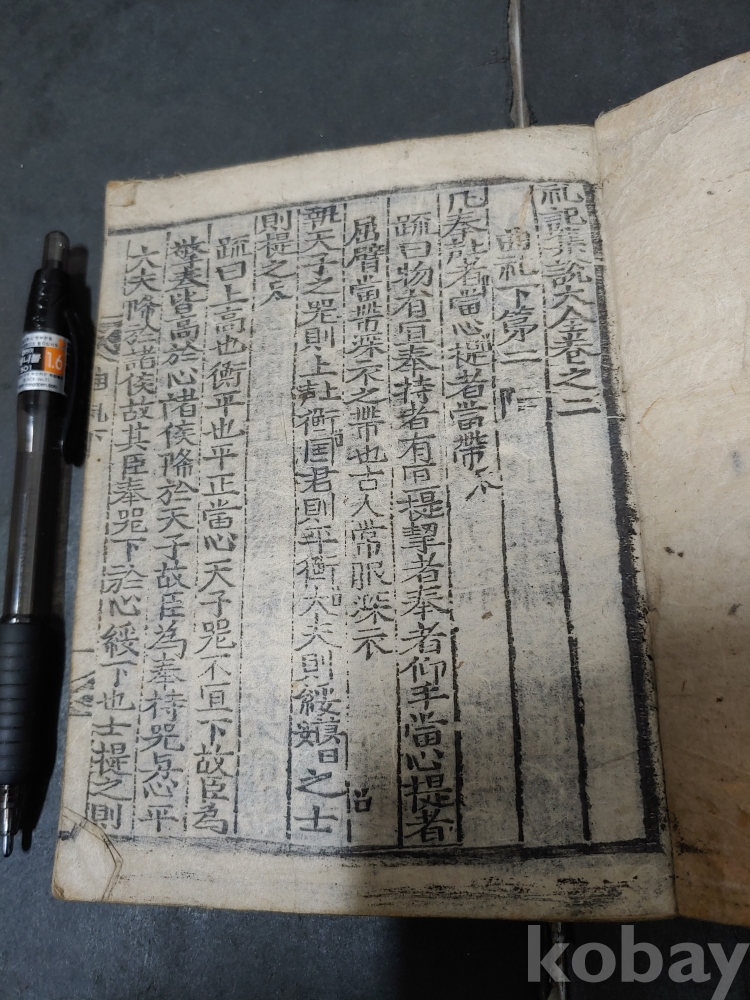 礼記集説大全卷之二
曲礼下第二
凡奉者當心提者當帶
疏曰物有宜奉持者有宜提挈者奉者仰手當心提者
屈臂當帶深衣之帶也古人常服深衣
執天子之器則上衡国君則平衡大夫則綏之士
則提之
疏曰上高也衡平也平正當心天子器不宜下故臣為
擎奉皆高於心諸侯降於天子故臣為奉持器与心平
大夫降於諸侯故其臣奉器下於心綏下也士提之則
曲礼下
1.6
kobay